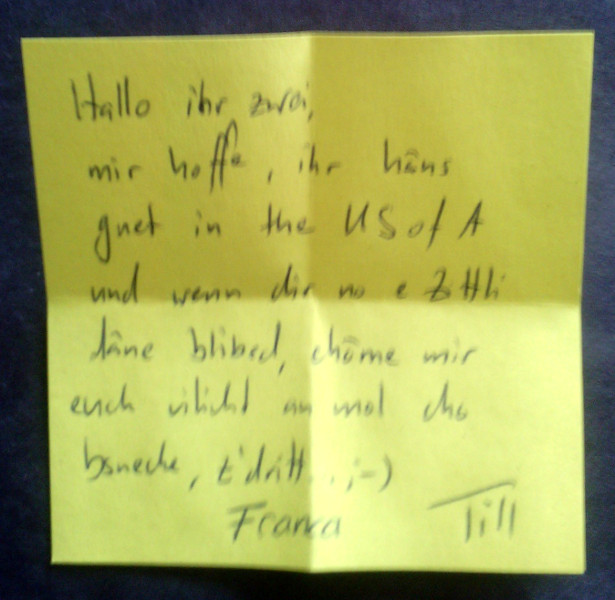 Hallo ihr zwei,
mir hoffe, ihr häns
guet in the US of A
und wenn dir no e Zittli
däne blibed, chöme mir
euch vilicht au mol cho
bsueche, z'dritt..;-)
Franca Till